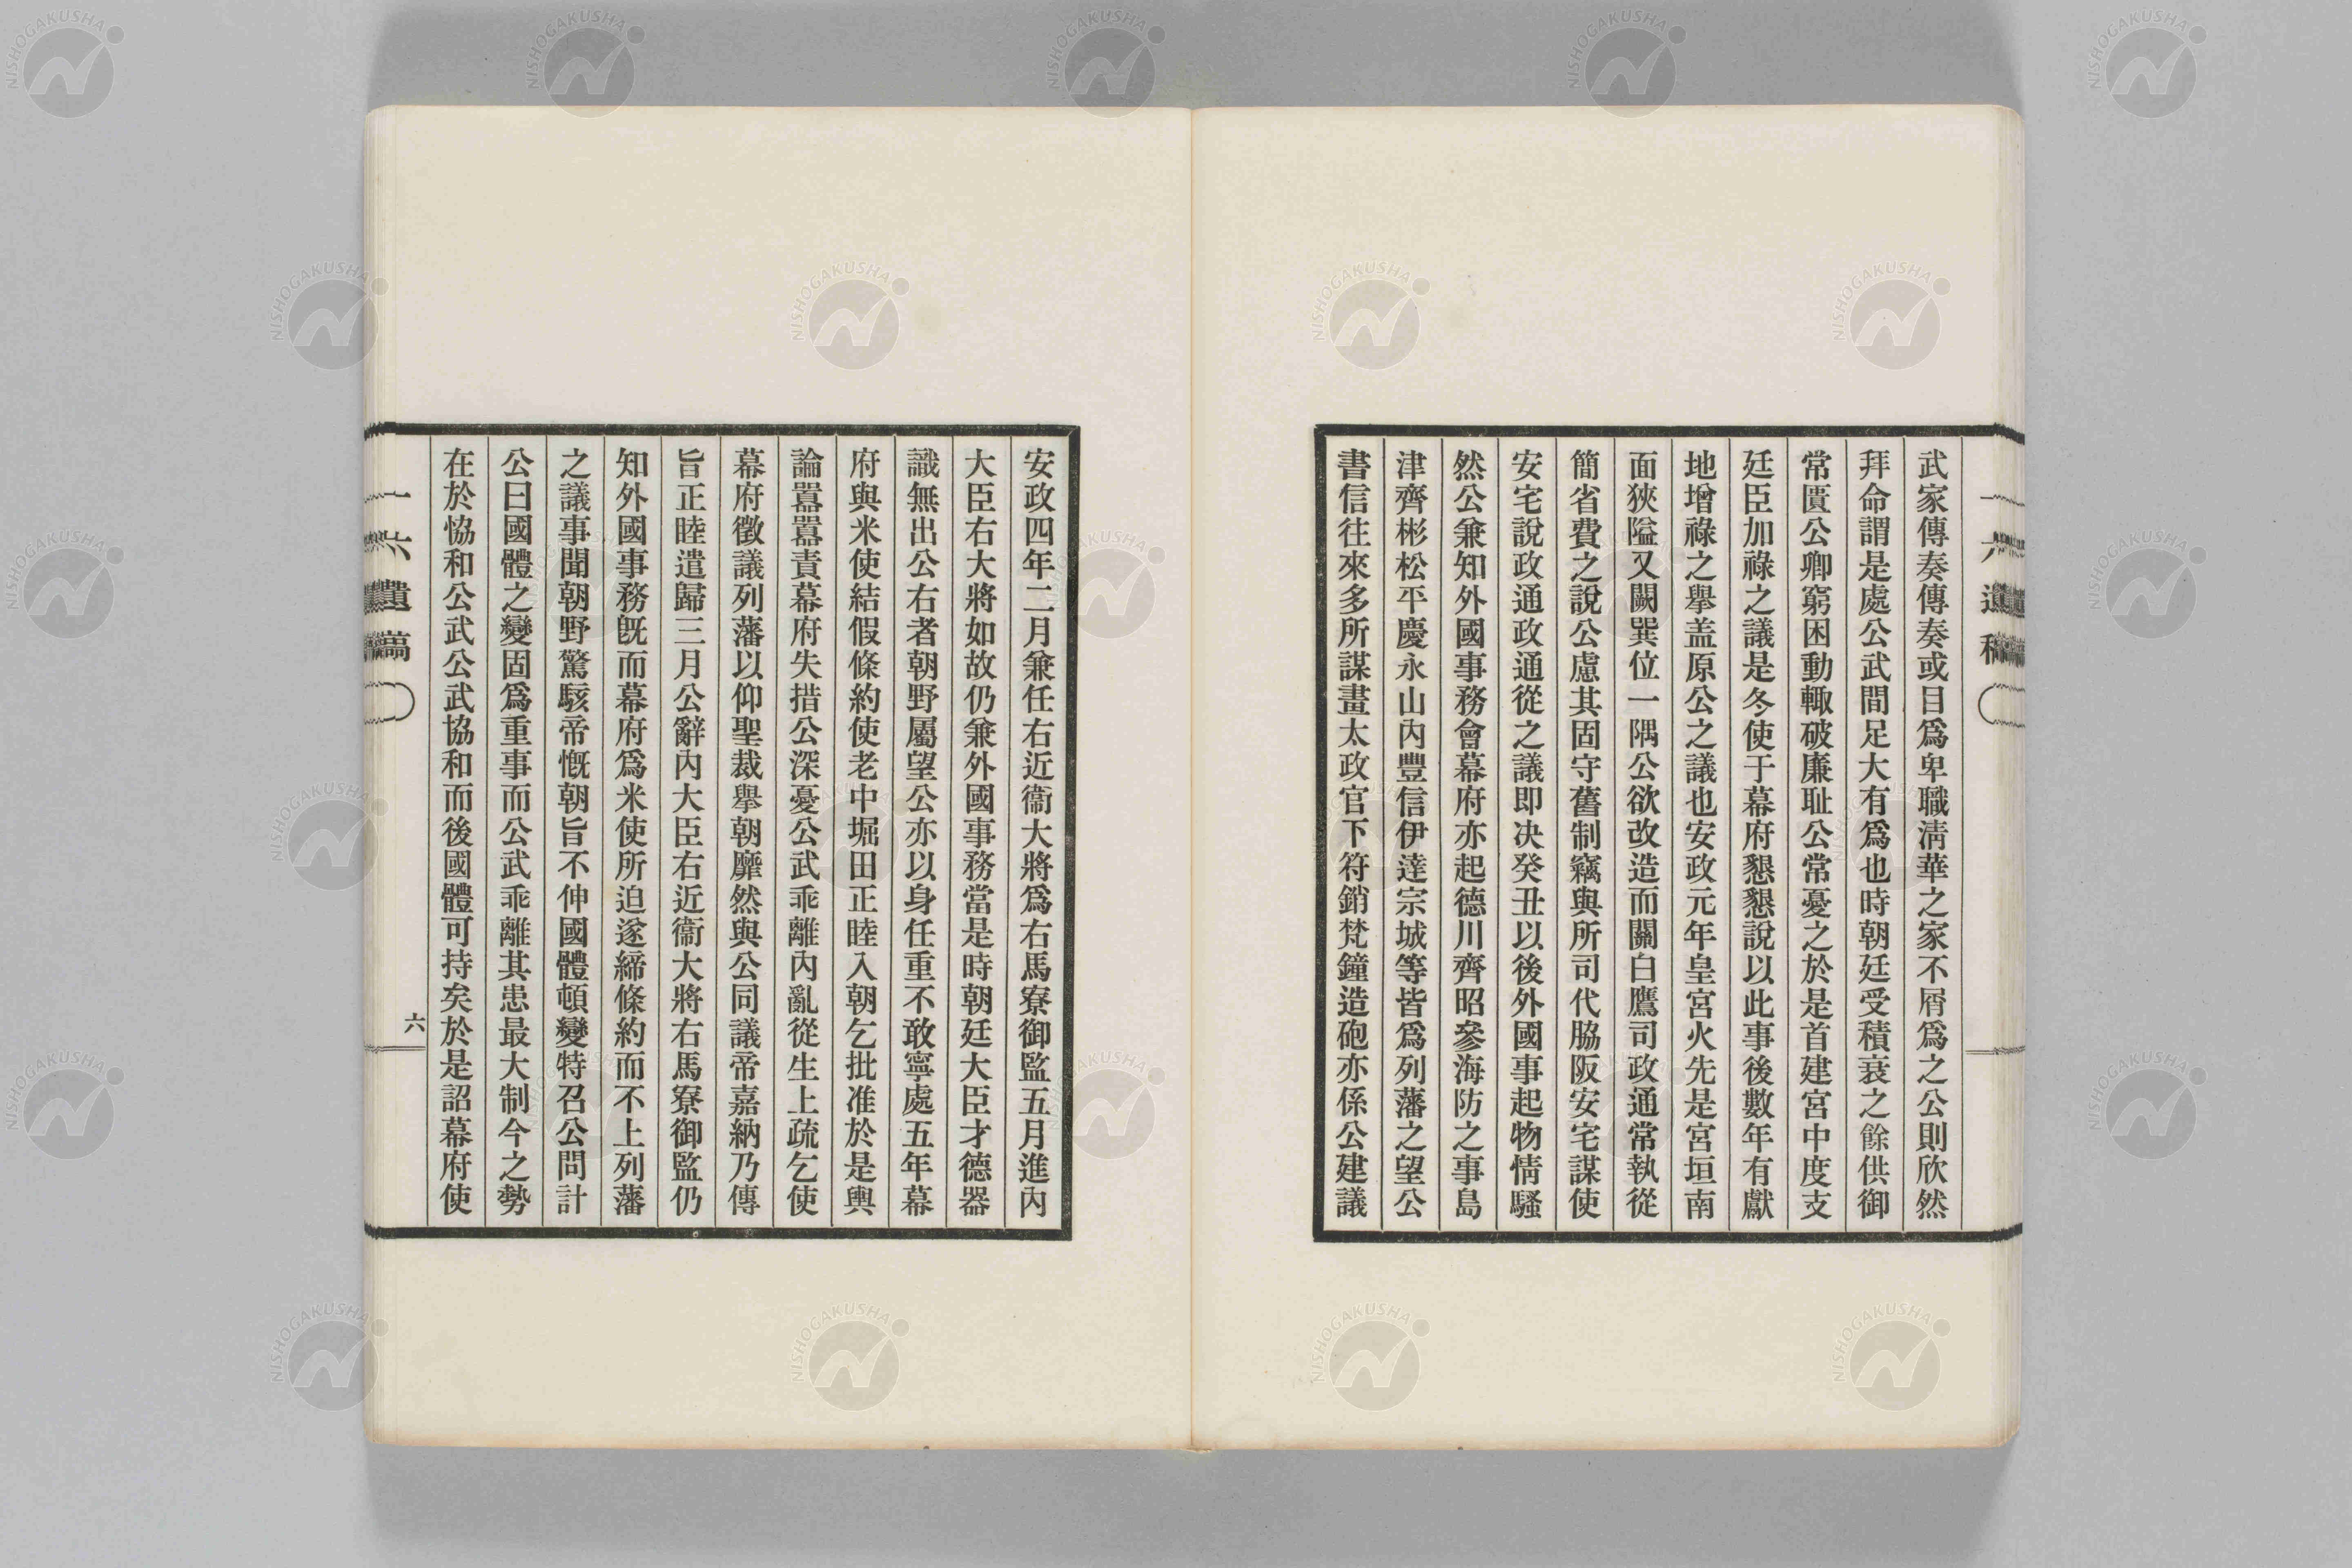 武家傳奏傳奏或目爲卑職淸華之家不屑爲之公則欣然
拜命謂是處公武間足大有爲也時朝廷受積衰之餘供御
常匱公卿窮困動輙破廉耻公常憂之於是首建宮中度支
廷臣加祿之議是冬使于幕府懇懇說以此事後數年有獻
地增祿之擧盖原公之議也安政元年皇宮火先是宮垣南
面狹隘又闕巽位一隅公欲改造而關白鷹司政通常執從
簡省費之說公慮其固守舊制竊與所司代脇阪安宅謀使
安宅說政通政通從之議即决癸丑以後外國事起物情騷
然公兼知外國事務會幕府亦起德川齊昭參海防之事島
津齊彬松平慶永山內豐信伊達宗城等皆爲列藩之望公
書信往來多所謀畫太政官下符銷梵鐘造砲亦係公建議
安政四年二月兼任右近衞大將爲右馬寮御監五月進內
大臣右大將如故仍兼外國事務當是時朝廷大臣才德器
識無出公右者朝野屬望公亦以身任重不敢寧處五年幕
府與米使結假條約使老中堀田正睦入朝乞批准於是輿
論囂囂責幕府失措公深憂公武乖離內亂從生上疏乞使
幕府徵議列藩以仰聖裁擧朝靡然與公同議帝嘉納乃傳
旨正睦遣歸三月公辭內大臣右近衞大將右馬寮御監仍
知外國事務旣而幕府爲米使所迫遂締條約而不上列藩
之議事聞朝野驚駭帝慨朝旨不伸國體頓變特召公問計
公曰國體之變固爲重事而公武乖離其患最大制今之勢
在於恊和公武公武協和而後國體可持矣於是詔幕府使
一六遺稿
六
一六遺稿
NISHOGAKUSHA